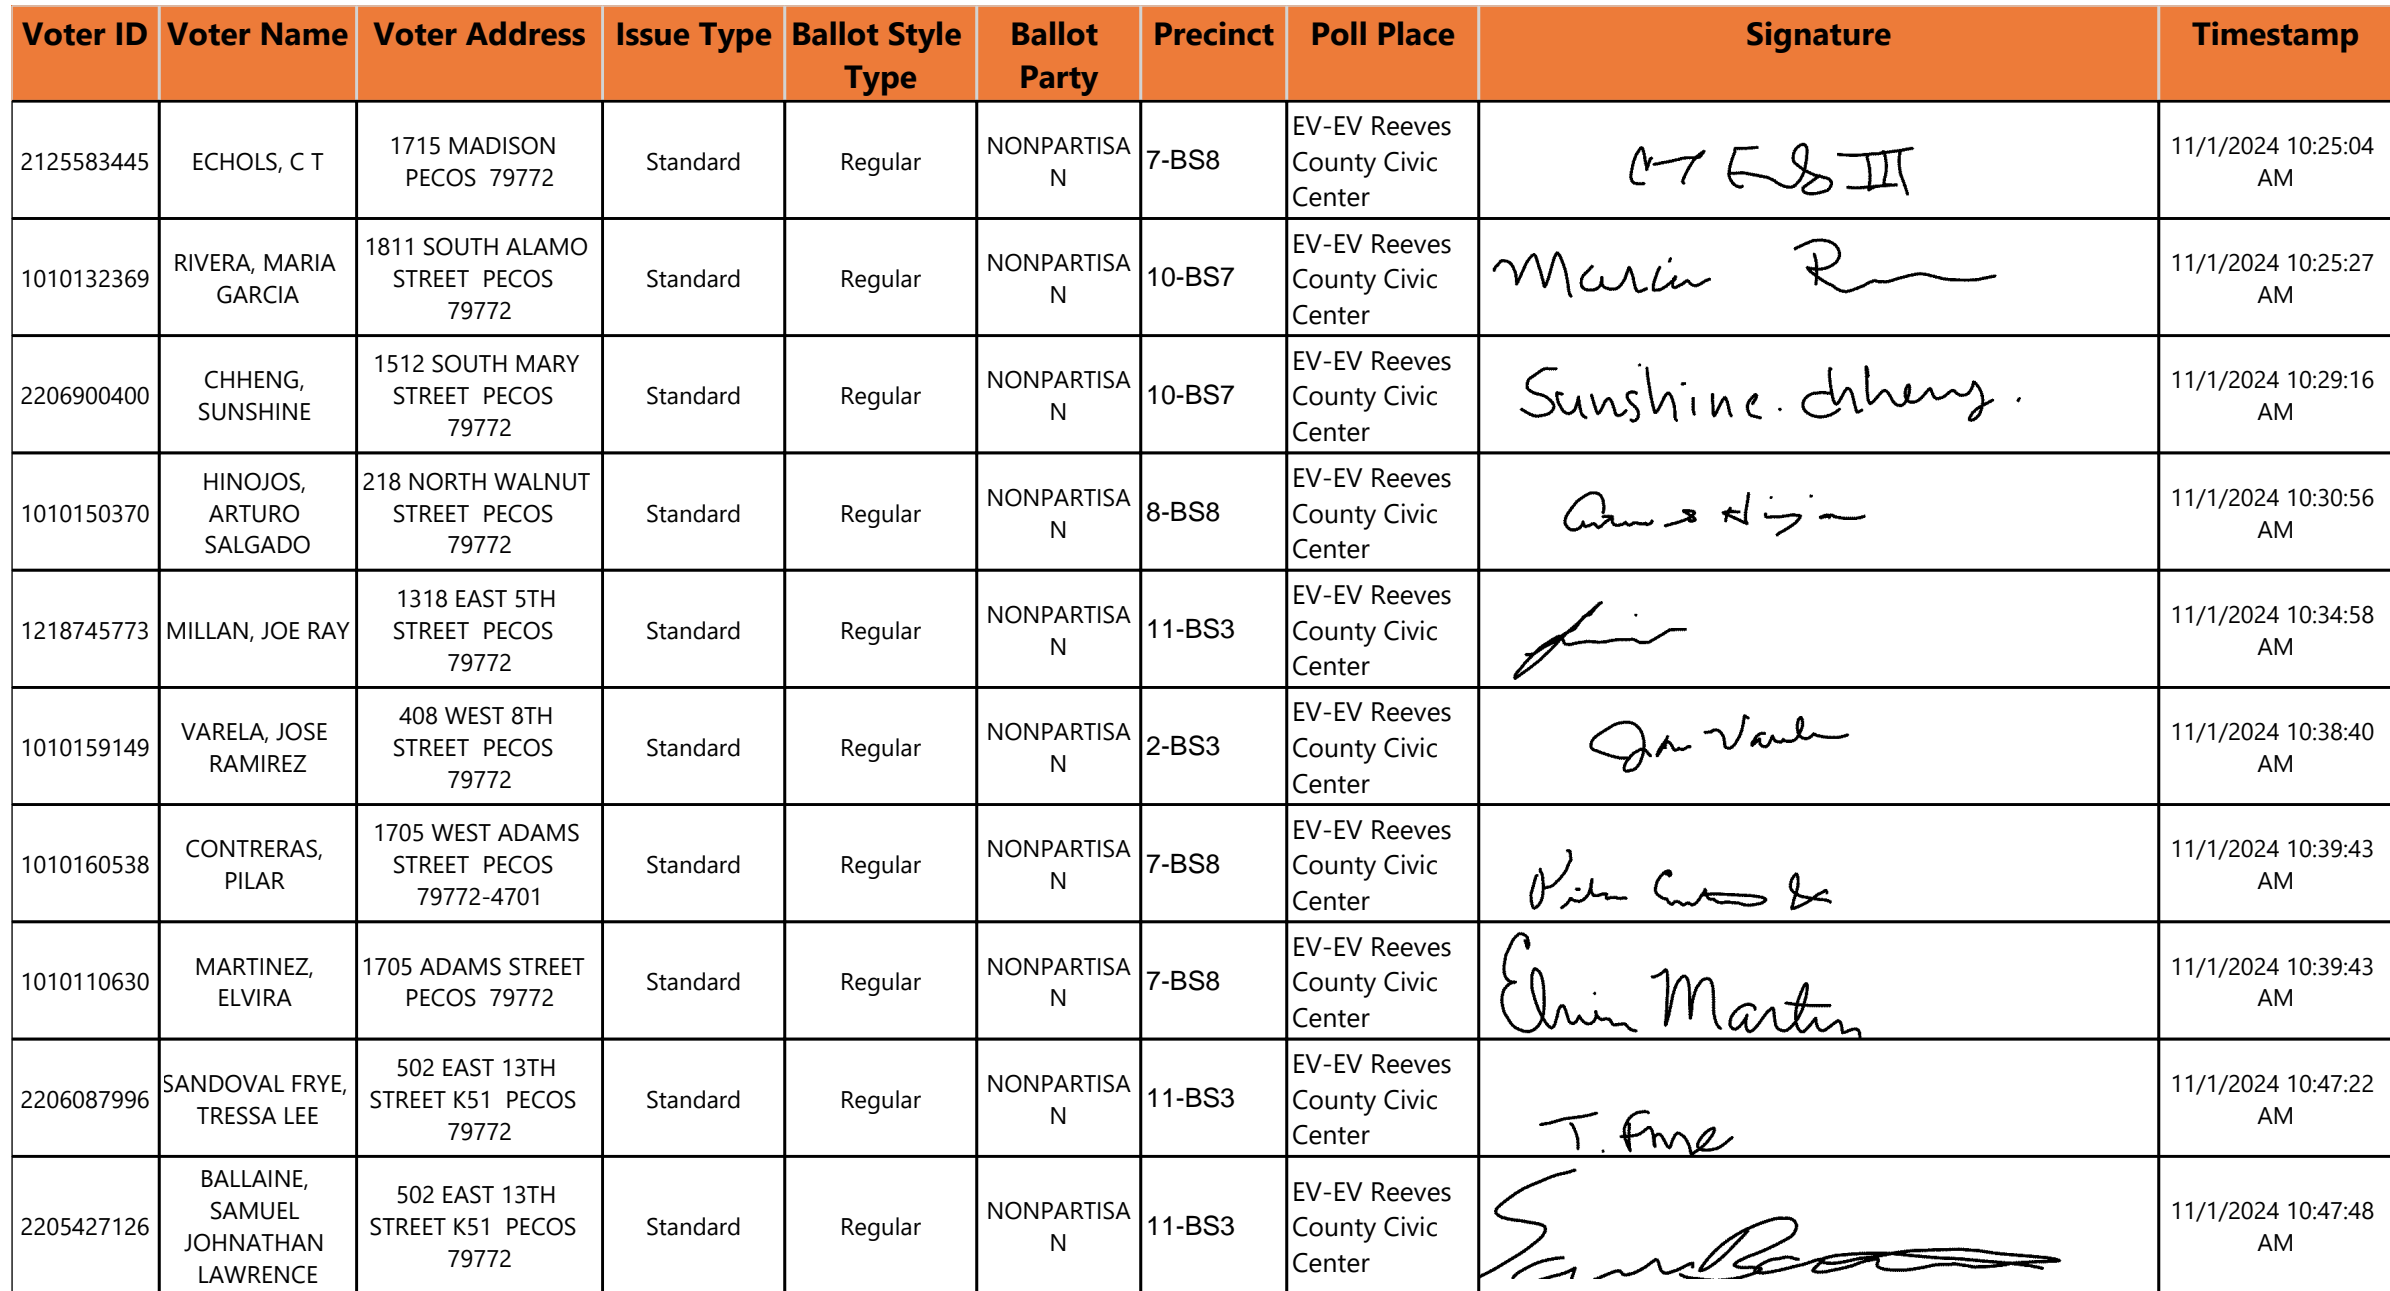 Voter ID Voter Name Voter Address Issue Type Ballot Style Type Ballot Party Precinct Poll Place Signature Timestamp
2125583445 ECHOLS, C T 1715 MADISON PECOS 79772 Standard Regular NONPARTISAN 7-BS8 EV-EV Reeves County Civic Center III 11/1/2024 10:25:04 AM
1010132369 RIVERA, MARIA GARCIA 1811 SOUTH ALAMO STREET PECOS 79772 Standard Regular NONPARTISAN 10-BS7 EV-EV Reeves County Civic Center 11/1/2024 10:25:27 AM
2206900400 CHHENG, SUNSHINE 1512 SOUTH MARY STREET PECOS 79772 Standard Regular NONPARTISAN 10-BS7 EV-EV Reeves County Civic Center Sunshine. chheng. 11/1/2024 10:29:16 AM
1010150370 HINOJOS, ARTURO SALGADO 218 NORTH WALNUT STREET PECOS 79772 Standard Regular NONPARTISAN 8-BS8 EV-EV Reeves County Civic Center 11/1/2024 10:30:56 AM
1218745773 MILLAN, JOE RAY 1318 EAST 5TH STREET PECOS 79772 Standard Regular NONPARTISAN 11-BS3 EV-EV Reeves County Civic Center 11/1/2024 10:34:58 AM
1010159149 VARELA, JOSE RAMIREZ 408 WEST 8TH STREET PECOS 79772 Standard Regular NONPARTISAN 2-BS3 EV-EV Reeves County Civic Center 11/1/2024 10:38:40 AM
1010160538 CONTRERAS, PILAR 1705 WEST ADAMS STREET PECOS 79772-4701 Standard Regular NONPARTISAN 7-BS8 EV-EV Reeves County Civic Center 11/1/2024 10:39:43 AM
1010110630 MARTINEZ, ELVIRA 1705 ADAMS STREET PECOS 79772 Standard Regular NONPARTISAN 7-BS8 EV-EV Reeves County Civic Center 11/1/2024 10:39:43 AM
2206087996 SANDOVAL FRYE, TRESSA LEE 502 EAST 13TH STREET K51 PECOS 79772 Standard Regular NONPARTISAN 11-BS3 EV-EV Reeves County Civic Center T. Frye 11/1/2024 10:47:22 AM
2205427126 BALLAINE, SAMUEL JOHNATHAN LAWRENCE 502 EAST 13TH STREET K51 PECOS 79772 Standard Regular NONPARTISAN 11-BS3 EV-EV Reeves County Civic Center 11/1/2024 10:47:48 AM